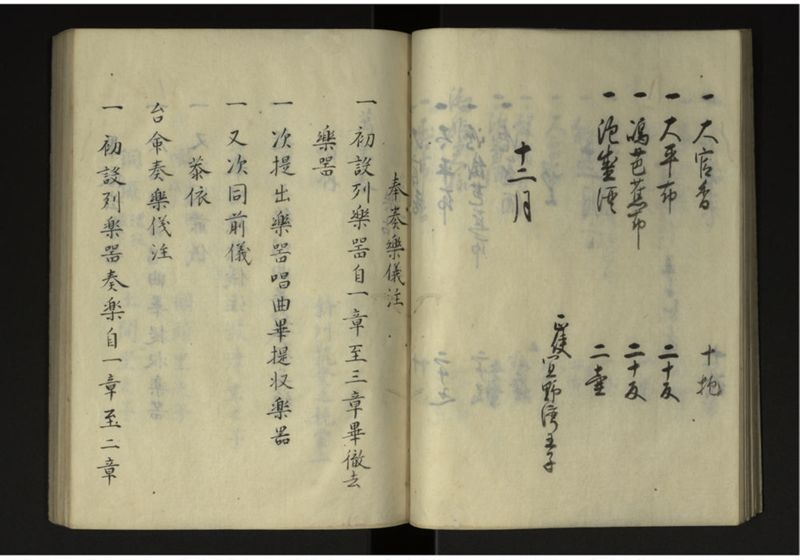 一 大官香 十
一 大平布 二十反
一 嶋芭蕉布 二十反
一 泡盛酒 二壷
十二月
野湾王子
奉奏樂儀注
一 初設列楽器自一章至三章畢徹去
楽器
一 次提出楽器唱曲畢提収楽器
一 又次同前儀
恭依
台命奏楽儀注
一 初設列楽器奏楽自一章至二章